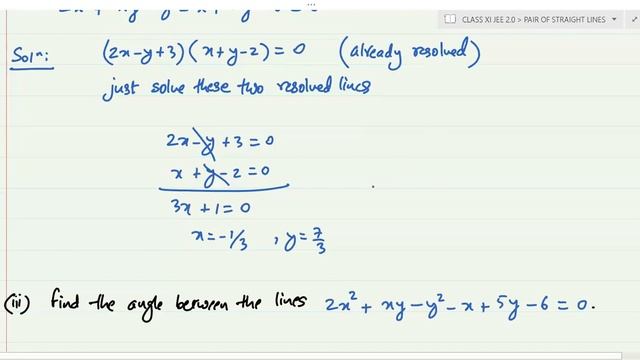 CLASS XI JEE 2.0 > PAIR OF STRAIGHT LINES
Solⁿ: (2x-y+3)(x+y-2)=0 (already resolved)
just solve these two resolved lines
2x-y+3=0
x+y-2=0
3x+1=0
x=-1/3, y=7/3
(iii) find the angle between the lines 2x²+xy-y²-x+5y-6=0.